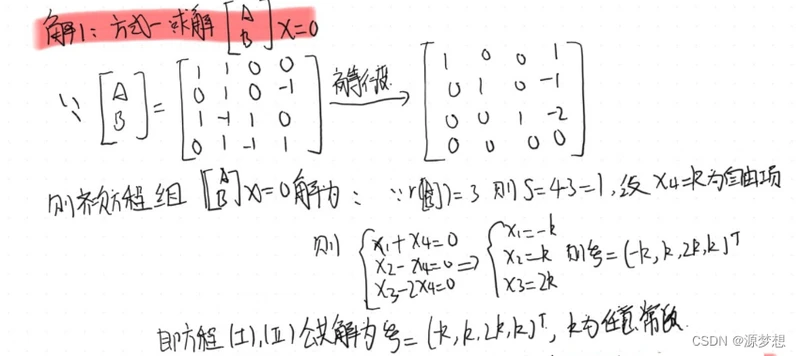 解1：方式一 求解 [A B] X=0
∵ [A B] = [1 1 0 0
0 1 0 -1
1 -1 1 0
0 1 -1 1] 初等行变→ [1 0 0 1
0 1 0 -1
0 0 1 -2
0 0 0 0]
则齐次方程组 [A B] X=0 解为： ∵ r([A B])=3 则 S=4-3=1, 设 X4=k 为自由项
则 { x1+x4=0
x2-x4=0
x3-2x4=0 ⇒ { x1=-k
x2=k
x3=2k 则 ξ=(-k, k, 2k, k)T
即方程(I),(II)公共解为 ξ=(-k, k, 2k, k)T, k为任意常数.
CSDN @源梦想